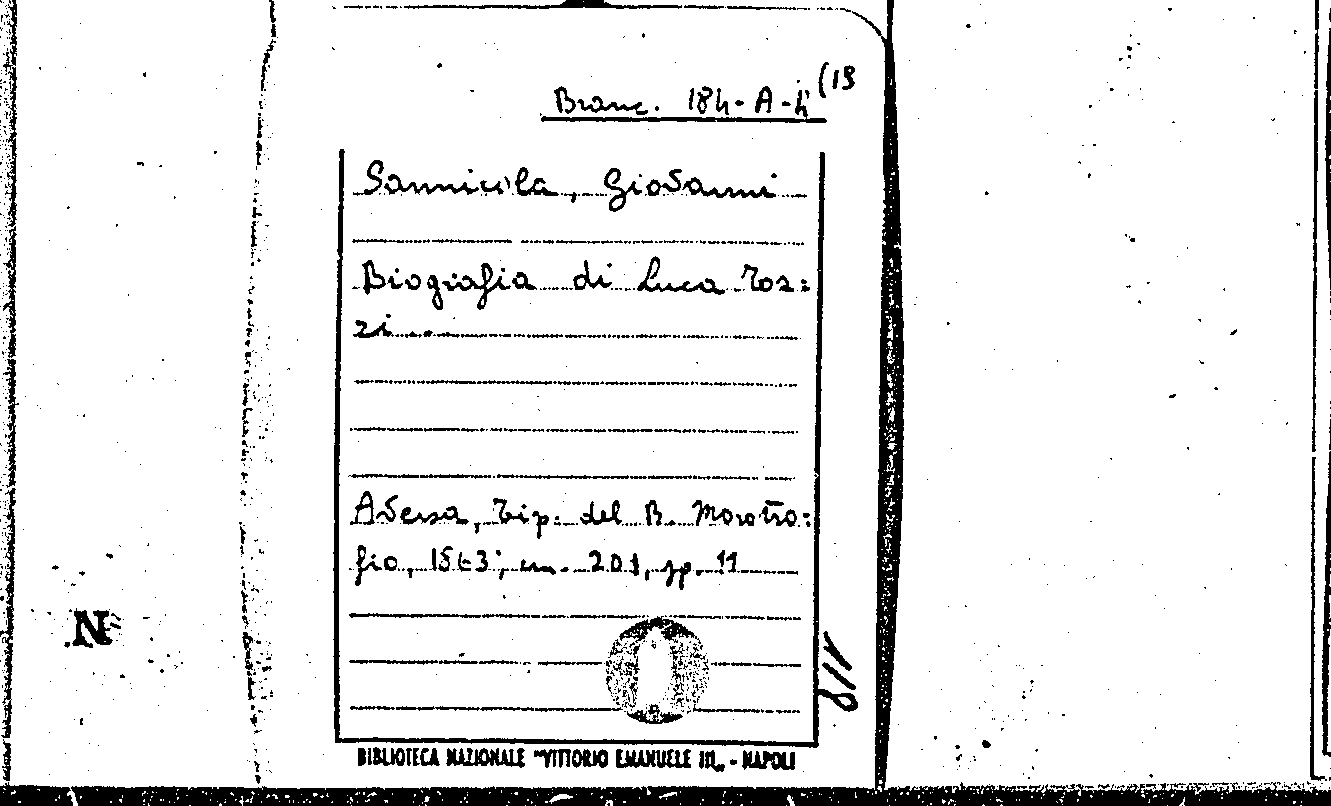 Branc. 184-A-4 (19
Sannicola, Giovanni
Biografia di Luca Toz=
zi...
Aversa, Tip. del B. Morotro=
fio, 1863; cm. 20½, pp. 11
N
118
BIBLIOTECA NAZIONALE "VITTORIO EMANUELE III„ - NAPOLI